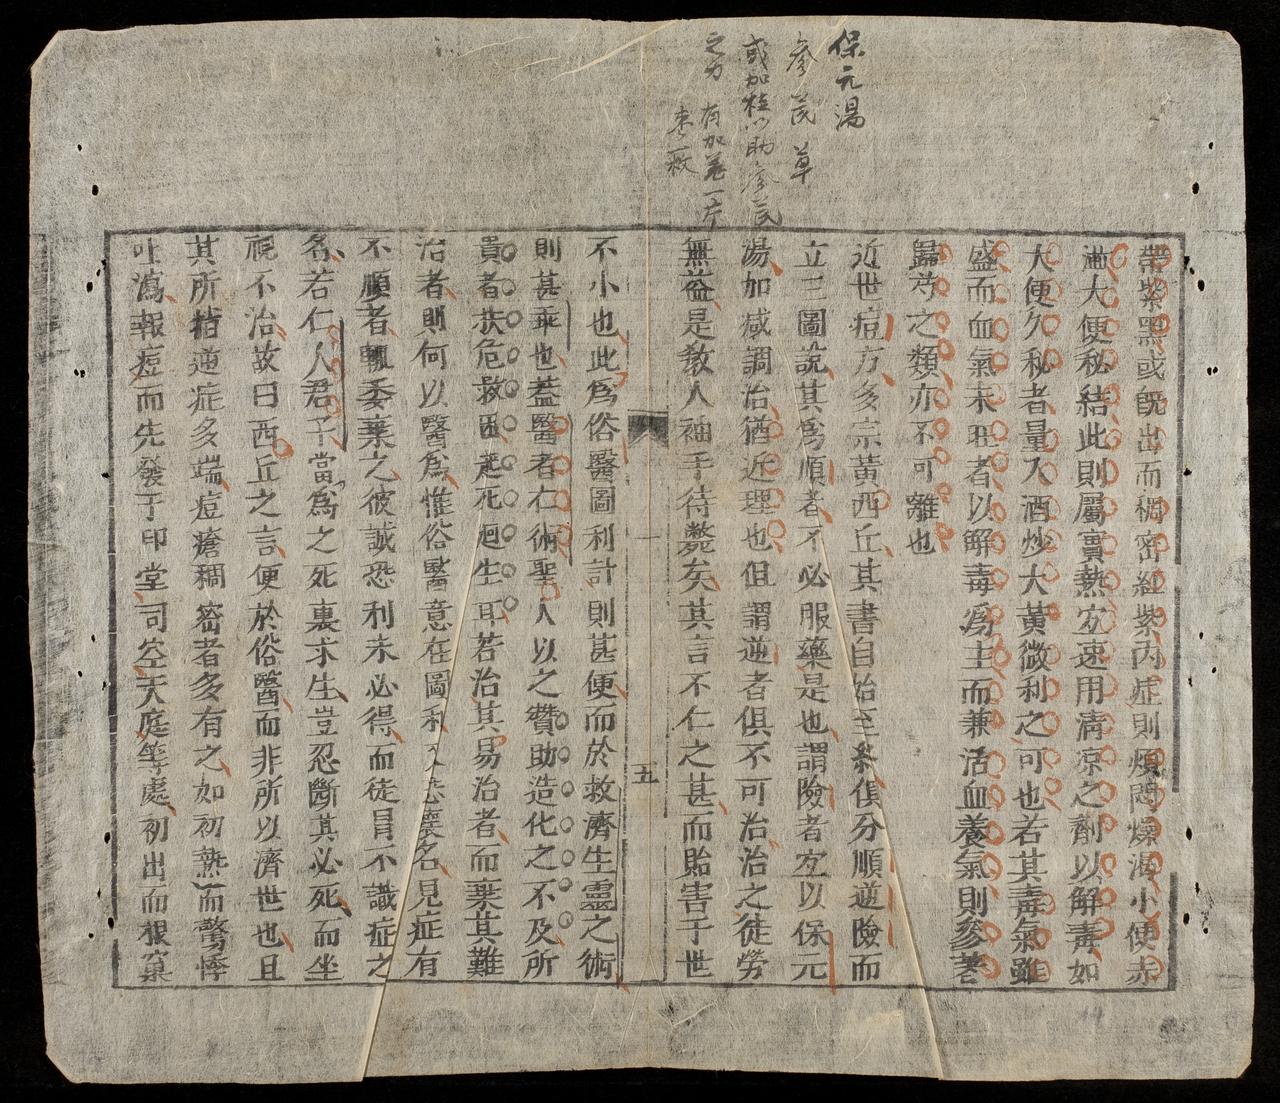 保元湯
參芪草
或加桂以助參芪
之力 有加姜一片
帶紫黑或旣出而稠密紅紫內症則煩悶燥渴小便赤
澁大便秘結此則屬實熱宜速用淸凉之劑以解毒如
大便久秘者量入酒炒大黃微利之可也若其毒氣雖
盛而血氣未旺者以解毒爲主而兼活血養氣則參芪
歸芎之類亦不可離也
近世痘方多宗黃西丘其書自始至終俱分順逆險而
立三圖說其爲順者不必服藥是也謂險者宜以保元
湯加減調治猶近理也但謂逆者俱不可治治之徒勞
無益是敎人袖手待斃矣其言不仁之甚而貽害于世
五
不小也此爲俗醫圖利計則甚便而於救濟生靈之術
則甚乖也蓋醫者仁術聖人以之贊助造化之不及所
貴者扶危救困起死迴生耳若治其易治者而棄其難
治者則何以醫爲惟俗醫意在圖利又恐壞名見症有
不順者輒委棄之彼誠恐利未必得而徒冒不識症之
名若仁人君子當爲之死裏求生豈忍斷其必死而坐
視不治故曰西丘之言便於俗醫而非所以濟世也且
其所指逆症多端痘瘡稠密者多有之如初熱而驚悸
吐瀉報痘而先發于印堂司空天庭等處初出而根窠